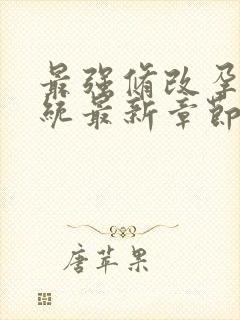 最强脩改孕
统最新章节
唐苹果